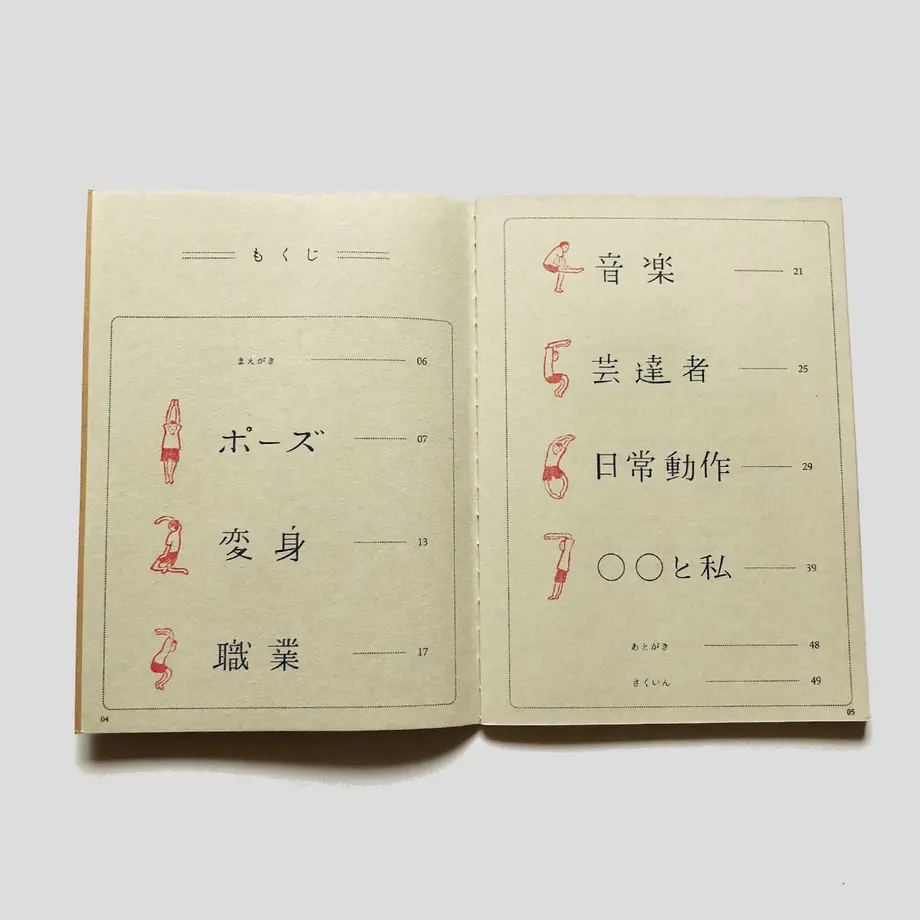 もくじ
まえがき 06
ポーズ 07
変身 13
職業 17
04
音楽 21
芸達者 25
日常動作 29
○○と私 39
あとがき 48
さくいん 49
05